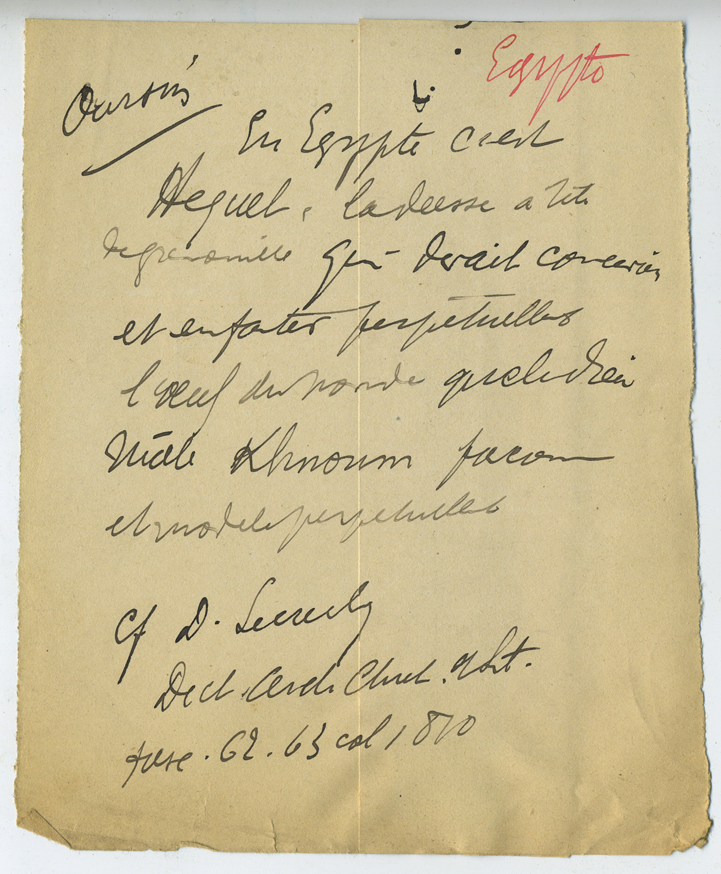 Egypte
Oursins
En Egypte c'est
Hequet, la déesse à tête
de grenouille qui devait concevoir
et enfanter perpétuelles
l'oeuf du monde que le dieu
Mâle Khnoum façon
et modele perpetuelles
Cf D. Leclercq
Dict. Arch. Chret. & Lit.
fasc. 62. 63 col 1810